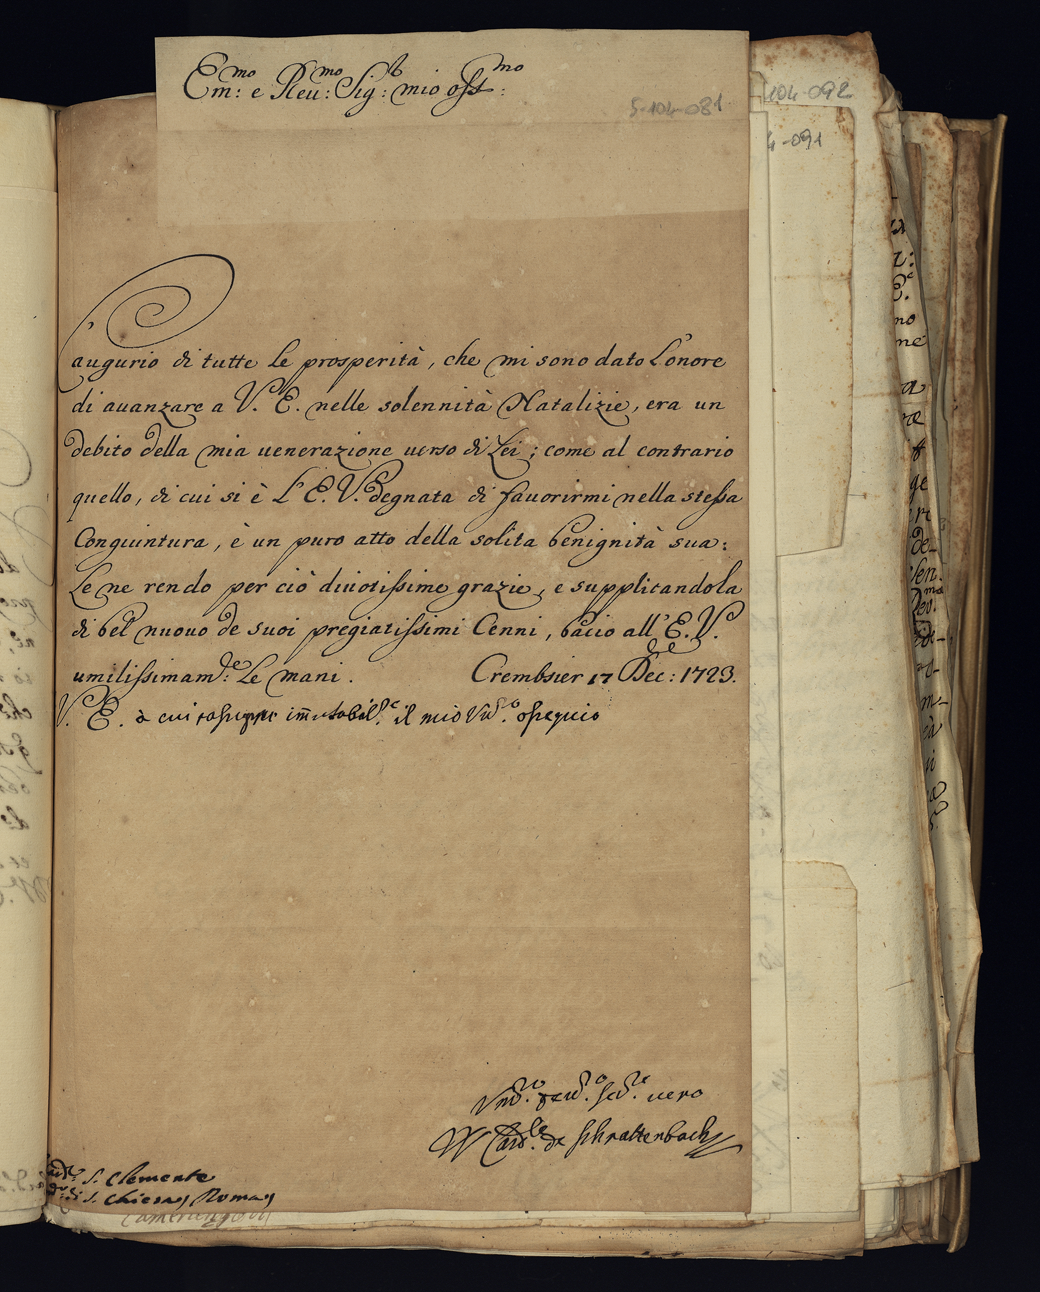 Em:mo e Reu:mo Sig:r mio oss:mo
5-104-081
104-092
4-091
L'augurio di tutte le prosperità, che mi sono dato L'onore
di auanzare a V. E. nelle solennità Natalizie, era un
debito della mia uenerazione uerso di Lei; come al contrario
quello, di cui si è L'E. V. degnata di fauorirmi nella stessa
Congiuntura, è un puro atto della solita benignità sua:
Le ne rendo per ciò diuotissime grazie, e supplicandola
di bel nuouo de suoi pregiatissimi Cenni, bacio all'E. V.
umilissimam:te Le mani. Crembsier 17 Dec: 1723.
V. E. à cui il mio ossequio
uero
W Card.le de Schrattenbach
S. Clemente
S. Chiesa Roma